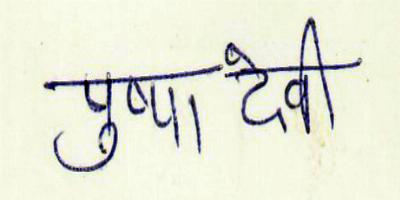 पुष्पा देवी